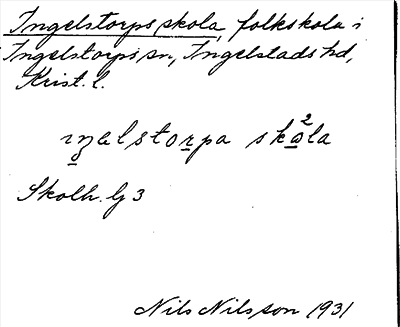 Ingelstorps skola, folkskola i
Ingelstorps sn, Ingelstads hd,
Krist. l.
ıŋəlstorpa skω²la
Skolh. G 3
Nils Nilsson 1931